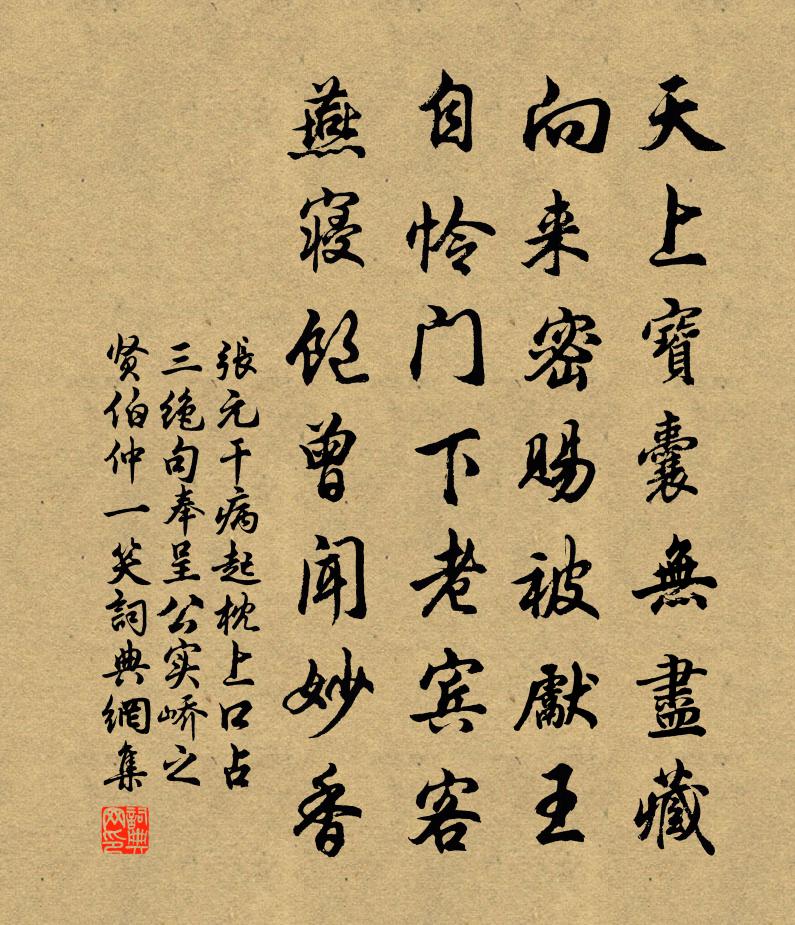 天上寶囊無盡藏
向来密賜被獻王
自怜门下老宾客
燕寝饱曾闻妙香
張元干病起枕上口占
三绝句奉呈公实峤之
贤伯仲一笑詞典網集
詞典网印